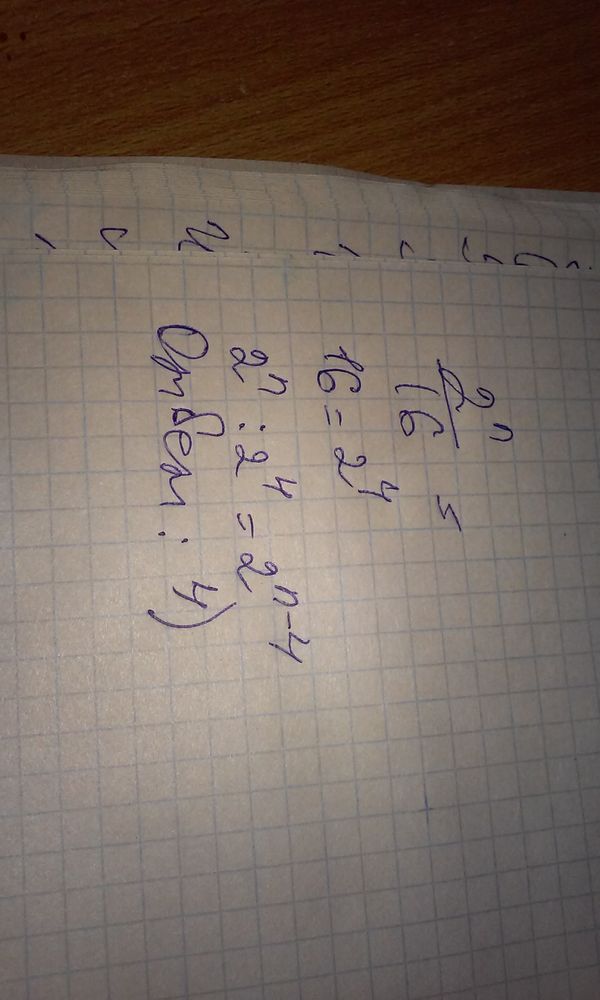 2ⁿ
16 =
16 = 2⁴
2ⁿ : 2⁴ = 2ⁿ⁻⁴
Ответ: 4)